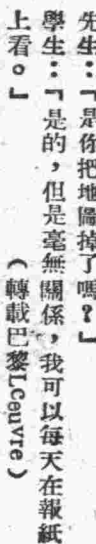 先生：「是你把地圖掉了嗎？」
學生：「是的，但是毫無關係，我可以每天在報紙
上看。」　（轉載巴黎Lceuvre）